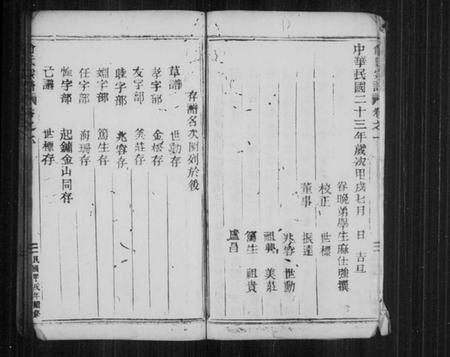 中華民國二十三年歲次甲戌七月 日 吉旦
眷晚弟學生麻仕強撰
校正 世標
董事 振達
兆容 世勳
祖興 美莊
篤生 祖貴
盧昌
存譜名次開列於後
草譜 世勳存
孝字部 金根存
友字部 美莊存
睦字部 兆容存
婣字部 篤生存
任字部 海珊存
恤字部 起鏞金山同存
世標存